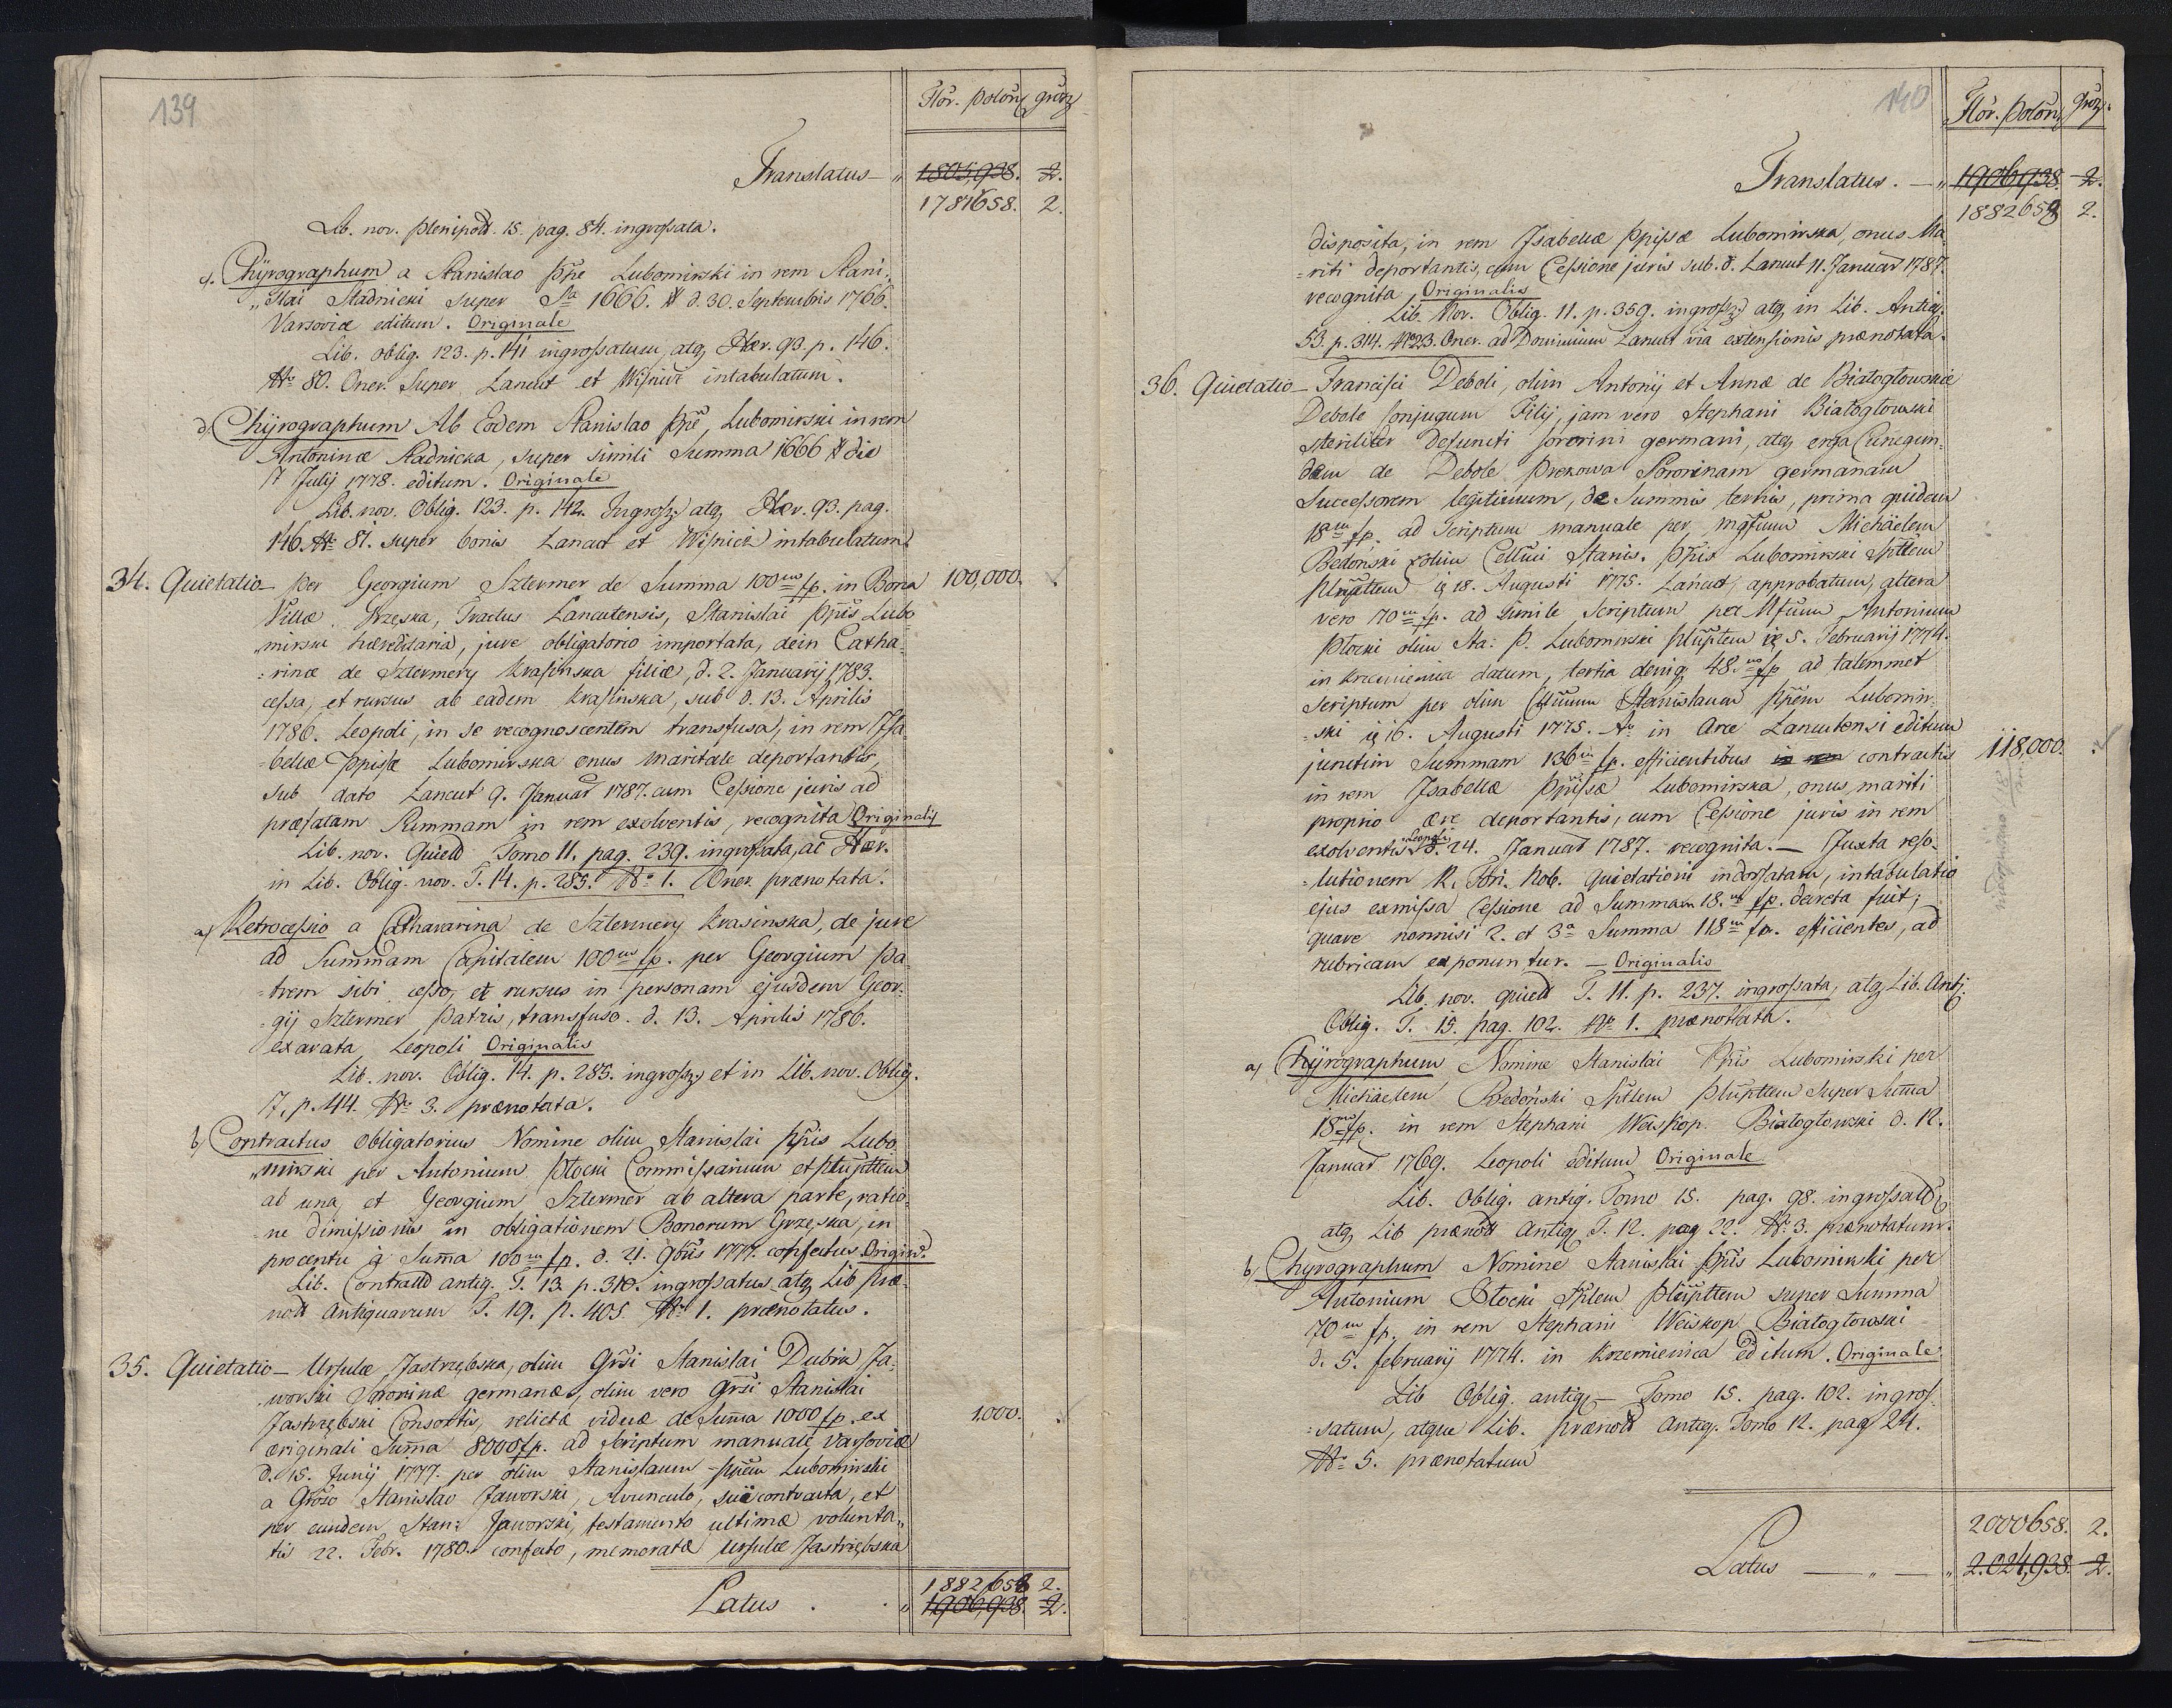 139
Flor. Polon. groz
Translatus — „ 1805,938. 2.
1781658. 2.
Lib. nov. Plenipott. 15. pag. 84. ingrossata.
c. Chÿrographum a Stanislao Ppe Lubomirski in rem Stani-
„slai Stadnicki super Sa 1666. # d. 30. Septembris 1766.
Varsoviæ editum. Originale
Lib. oblig. 123. p. 141 ingrossatum, atq. Hær. 93. p. 146.
No 80. Oner. Super Lancut et Wisnicz intabulatum.
d. Chÿrographum Ab Eodem Stanislao Ppe Lubomirski in rem
Antoninæ Stadnicka, super simili Summa 1666 # die
17 Julij 1778. editum. Originale
Lib. nov. Oblig. 123. p. 142. Ingross. atq. Hær. 93. pag.
146. No 81. super bonis Lancut et Wisnicz intabulatum.
34. Quietatio — per Georgium Sztermer de Summa 100m fp. in Bona 100,000.
Villæ Grzęska, Tractus Lancutensis, Stanislai Ppis Lubo-
„mirski hæreditaria, jure obligatorio importata, dein Catha-
=rinæ de Sztermery Krasinska filiæ, d. 2. Januarij 1783.
cessa, et rursus ab eadem Krasinska, sub d. 13. Aprilis
1786. Leopoli, in se recognoscentem transfusa, in rem Isa-
=bellæ Ppissæ Lubomirska onus maritale deportantis,
sub dato Lancut 9. Januar 1787. cum Cessione juris ad
præfatam Summam in rem exolventis, recognita Originalis
Lib. nov. Quiett Tomo 11. pag. 239. ingrossata, ac Hær.
in Lib. Oblig. nov. T. 14. p. 285. No 1. Oner. prænotata.
a) Retrocessio a Cathavarina de Sztermery Krasinska, de jure
ad Summam Capitalem 100m fp. per Georgium Pa-
=trem sibi cesso, et rursus in personam ejusdem Geor-
=gij Sztermer Patris, transfuso. d. 13. Aprilis 1786.
exarata Leopoli Originalis
Lib. nov. Oblig. 14. p. 285. ingross. et in Lib. nov. Oblig.
17. p. 44. No 3. prænotata.
b) Contractus Obligatorius Nomine olim Stanislai Ppis Lubo-
„mirski per Antonium Płocki Commissarium et plnpttem
ab una, et Georgium Sztermer ab altera parte, ratio-
ne dimissionis in obligationem Bonorum Grzęska, in
procentu à Summa 100m fp. d. 21. 9bris 1777. confectus. Origin.
Lib. Contractt antiq. T. 13. p. 310. ingrossatus atq. Lib. præ-
nott Antiquarum T. 19. p. 405. No 1. prænotatus.
35. Quietatio — Ursulæ Jastrzębska, olim Grsi Stanislai Dubik Ja-
worski Sororinæ germanæ, olim vero Grsi Stanislai
Jastrzębski Consortis, relictæ viduæ de Summa 1000 fp. ex 1,000.
originali Summa 8000 fp. ad scriptum manuale Varsoviæ
d. 15. Junij 1777. per olim Stanislaum Ppem Lubomirski
a Groso Stanislao Jaworski, Avunculo, sui contracta, et
per eundem Stan: Jaworski, testamento ultimæ volunta„
tis 22. Febr. 1780. confecto, memoratæ Ursulæ Jastrzębska
1882658 2.
Latus . . „ 1,906,938. 2.
140
Flor. Polon. groz.
Translatus. — „ 1906,938. 2.
1882658 2.
disposita, in rem Isabellæ Ppissæ Lubomirska, onus Ma-
=riti deportantis, cum Cessione juris sub. d. Lancut 11. Januar 1787.
recognita, Originalis
Lib. Nov. Oblig. 11. p. 359. ingross. atq. in Lib. Antiq.
53. p. 314. No 23. Oner. ad Dominium Lancut via extensionis prænotata.
36. Quietatio — Francisci Deboli, olim Antonij et Annæ de Białogłowskie
Debole Conjugum Filij, jam vero Stephani Białogłowski
steriliter defuncti Sororini germani, atq. erga Cunegun-
dem de Debole Prekowa Sororinam germanam
Successorem legitimum, de Summis ternis, prima quidem
18m fp. ad Scriptum manuale per Mgfum Michäelem
Bedonski olim Celsmi Stanis. Ppis Lubomirski Spttem
Plnpttem 18. Augusti 1775. Lancut, approbatum, altera
vero 70m fp. ad simile Scriptum per Mfcum Antonium
Płocki olim Sta: P. Lubomirski plnpttem 5. Februarij 1774.
in Krzemienica datum, tertia deniq. 48.m fp ad talemmet
Scriptum per olim Celsmum Stanislaum Ppem Lubomir-
=ski 16. Augusti 1775. Ao. in Arce Lancutensi editum
junctim Summam 136m fp. efficientibus contractis 118,000.
in rem Isabellæ Ppissæ Lubomirska, onus mariti
proprio ære deportantis, cum Cessione juris in rem
exolventis Leopoli d. 24. Januar 1787. recognita. — Juxta reso-
=lutionem R. Fori. Nob. quietationi indorsatam, intabulatio
ejus exmissa Cessione ad Summam 18.m fp. decreta fuit;
quare nonnisi 2. et 3a Summa 118m fp. efficientes, ad
rubricam exponuntur. — Originalis
Lib. nov. quiett T. 11. p. 237. ingrossata, atq. Lib. Anti.
Oblig. T. 15. pag. 102. No 1. prænottata.
a) Chÿrographum Nomine Stanislai Ppis Lubomirski per
Michäelem Bedoński Spttem plnpttem super Summa
18m fp. in rem Stephani Weiskop. Białogłowski d. 12.
Januar 1769. Leopoli editum Originale
Lib. Oblig. antiq. Tomo 15. pag. 98. ingrossatt
atq. Lib prænott Antiq. T. 12. pag 22. No 3. prænotatum.
b) Chyrographum Nomine Stanislai Ppis Lubomirski per
Antonium Płocki Spttem plnpttem super Summa
70m fp. in rem Stephani Weiskop. Białogłowski
d. 5. februarij 1774. in Krzemienica editum. Originale
Lib Oblig. antiq. — Tomo 15. pag. 102. ingros-
=satum, atque Lib. prænott Antiq. Tomo 12. pag 24.
No 5. prænotatum
2000658. 2.
Latus — „ — „ 2.024,938. 2.